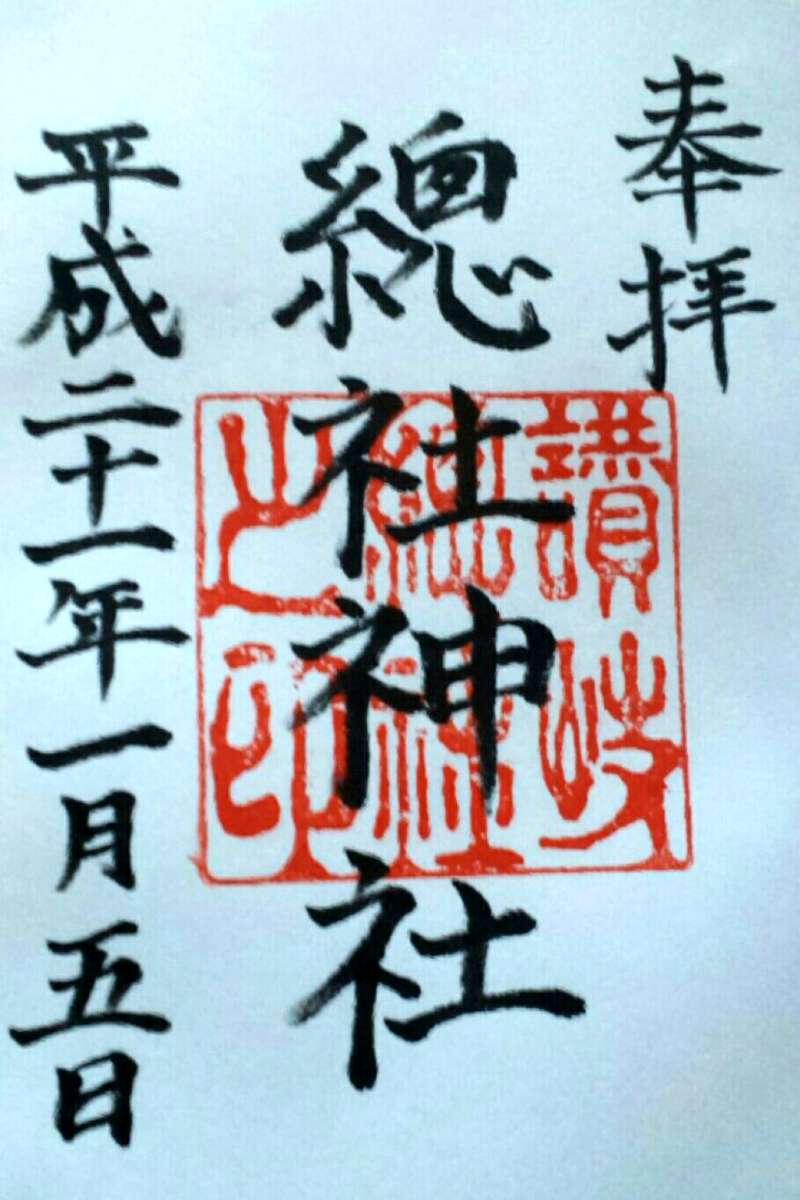 奉拝
總社神社
讃岐
總社
之印
平成二十一年一月五日